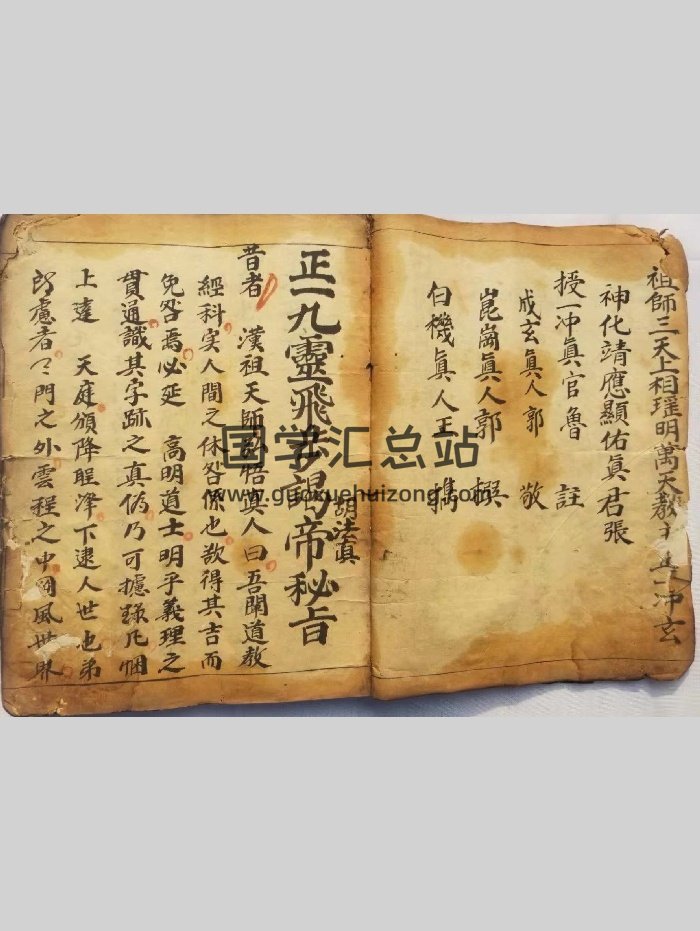 祖師三天上相瑶明萬天教主真一冲玄
神化靖應顯佑真君張
授一冲眞官魯 註
成玄眞人郭 敬
崑崗眞人郭 撰
白機眞人王 擕
胡法真
正一九靈飛步謁帝秘旨
昔者 漢祖天師 悟真人曰吾聞道教
經科实人間之休咎係也欲得其吉而
免咎焉必延 高明道士明乎義理之
貫通識其字跡之真偽乃可據錄凡悃
上達 天庭頒降 下逮人世也弟
所慮者天門之外雲程之中罡風世界
国学汇总站
www.guoxuehuizong.com